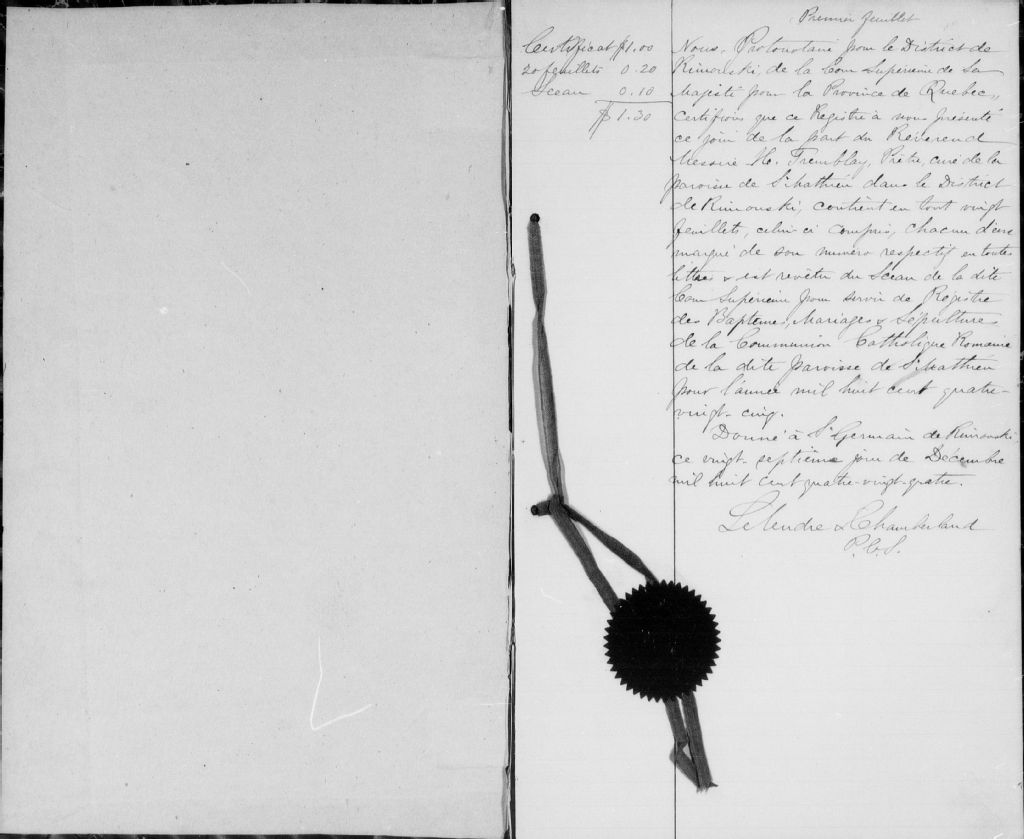 Premier feuillet
Certificat $1.00
20 feuillets 0.20
Sceau 0.10
$1.30
Nous, Protonotaire pour le District de
Rimouski, de la Cour Supérieure de Sa
Majesté pour la Province de Québec,,
Certifions que ce Registre à nous présenté
ce jour de la part du Révérend
Messire H. Tremblay, Prêtre, curé de la
paroisse de St Mathieu dans le District
de Rimouski, contient en tout vingt
feuillets, celui-ci compris, chacun d'eux
marqué de son numéro respectif en toutes
lettres & est revêtu du Sceau de la dite
Cour Supérieure pour servir de Registre
des Baptêmes, Mariages & Sépultures
de la Communion Catholique Romaine
de la dite paroisse de St Mathieu
pour l'année mil huit cent quatre-
vingt-cinq.
Donné à St Germain de Rimouski
ce vingt-septième jour de Décembre
mil huit cent quatre-vingt-quatre.
Letendre & Chamberland
P.C.S.